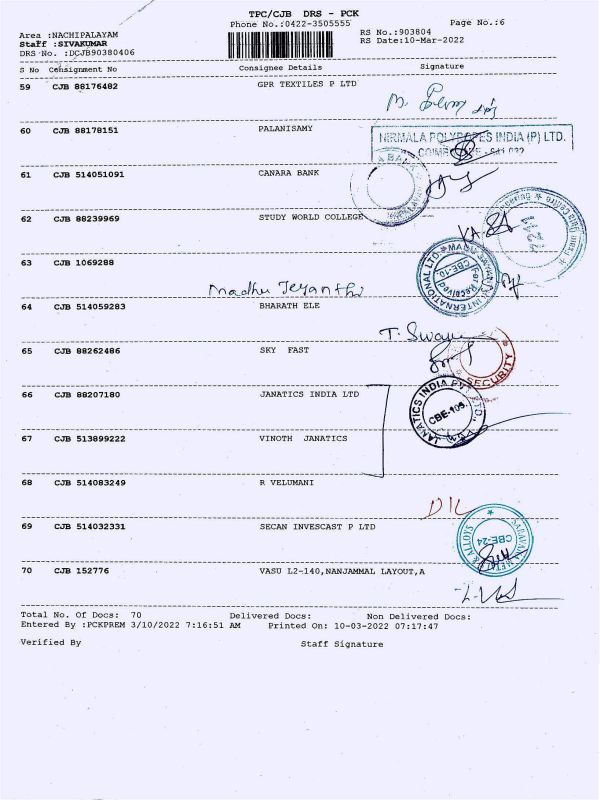 TPC/CJB DRS - PCK
Phone No.:0422-3505555
Page No.:6
Area :NACHIPALAYAM
RS No.:903804
Staff :SIVAKUMAR
RS Date:10-Mar-2022
DRS No. :DCJB90380406
S No Consignment No Consignee Details Signature
59 CJB 88176482 GPR TEXTILES P LTD
60 CJB 88178151 PALANISAMY
NIRMALA POLYROPES INDIA (P) LTD.
61 CJB 514051091 CANARA BANK
62 CJB 88239969 STUDY WORLD COLLEGE
63 CJB 1069288
Madhu Jeyanthi
INTERNATIONAL LTD. * MADHU JAYANTHI
For Received
CBE-10.
64 CJB 514059283 BHARATH ELE
65 CJB 88262486 SKY FAST
SECURITY
66 CJB 88207180 JANATICS INDIA LTD
JANATICS INDIA PVT. LTD.,
CBE-109.
67 CJB 513899222 VINOTH JANATICS
68 CJB 514083249 R VELUMANI
69 CJB 514032331 SECAN INVESCAST P LTD
CBE-24
70 CJB 152776 VASU L2-140,NANJAMMAL LAYOUT,A
Total No. Of Docs: 70 Delivered Docs: Non Delivered Docs:
Entered By :PCKPREM 3/10/2022 7:16:51 AM Printed On: 10-03-2022 07:17:47
Verified By Staff Signature